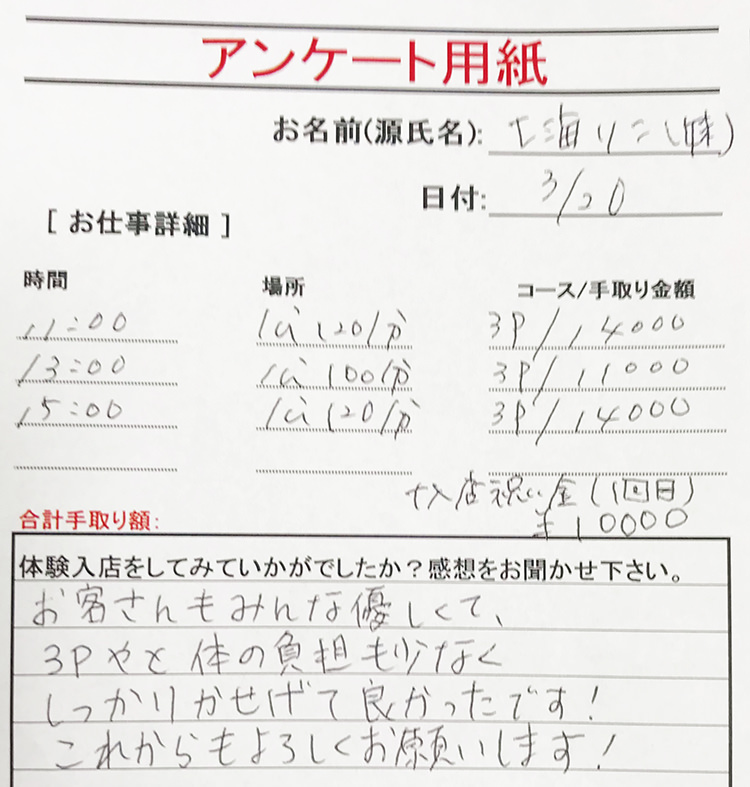 アンケート用紙
お名前(源氏名): 七海りこ(妹)
日付: 3/20
[ お仕事詳細 ]
時間 場所 コース/手取り金額
11:00 120分 3P/14000
13:00 100分 3P/11000
15:00 120分 3P/14000
+入店祝い金(1回目)
合計手取り額: ¥10000
体験入店をしてみていかがでしたか?感想をお聞かせ下さい。
お客さんもみんな優しくて、
3Pやと体の負担も少なく
しっかりかせげて良かったです!
これからもよろしくお願いします!